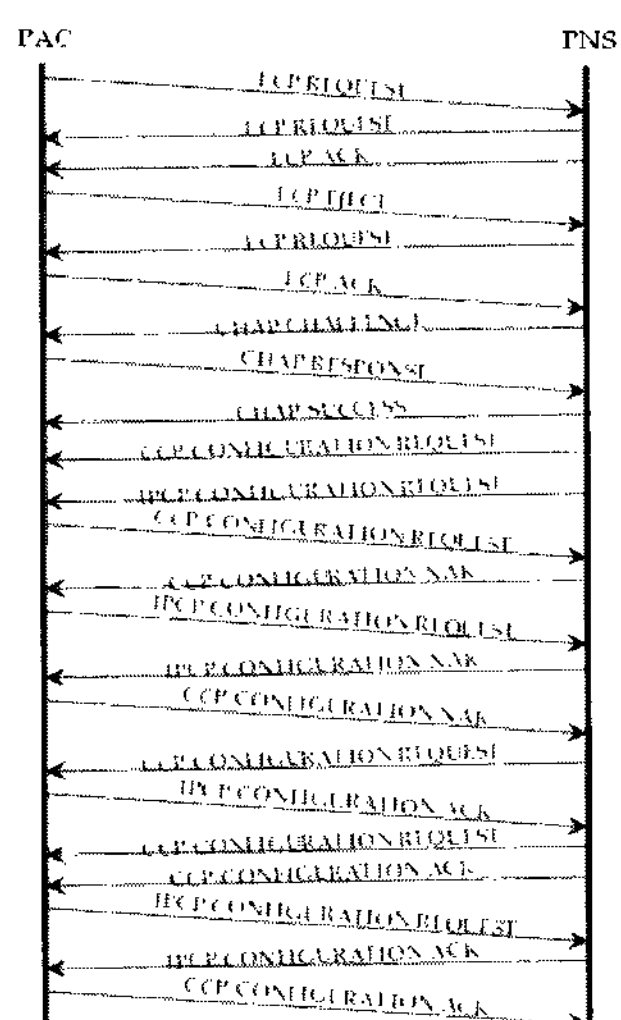 PAC
PNS
LCP REQUEST
LCP REQUEST
LCP ACK
LCP
LCP REQUEST
LCP ACK
CHAP CHALLENGE
CHAP RESPONSE
CHAP SUCCESS
CCP CONFIGURATION REQUEST
IPCP CONFIGURATION REQUEST
CCP CONFIGURATION REQUEST
CCP CONFIGURATION NAK
IPCP CONFIGURATION REQUEST
IPCP CONFIGURATION NAK
CCP CONFIGURATION NAK
CCP CONFIGURATION REQUEST
IPCP CONFIGURATION ACK
CCP CONFIGURATION REQUEST
CCP CONFIGURATION ACK
IPCP CONFIGURATION REQUEST
IPCP CONFIGURATION ACK
CCP CONFIGURATION ACK